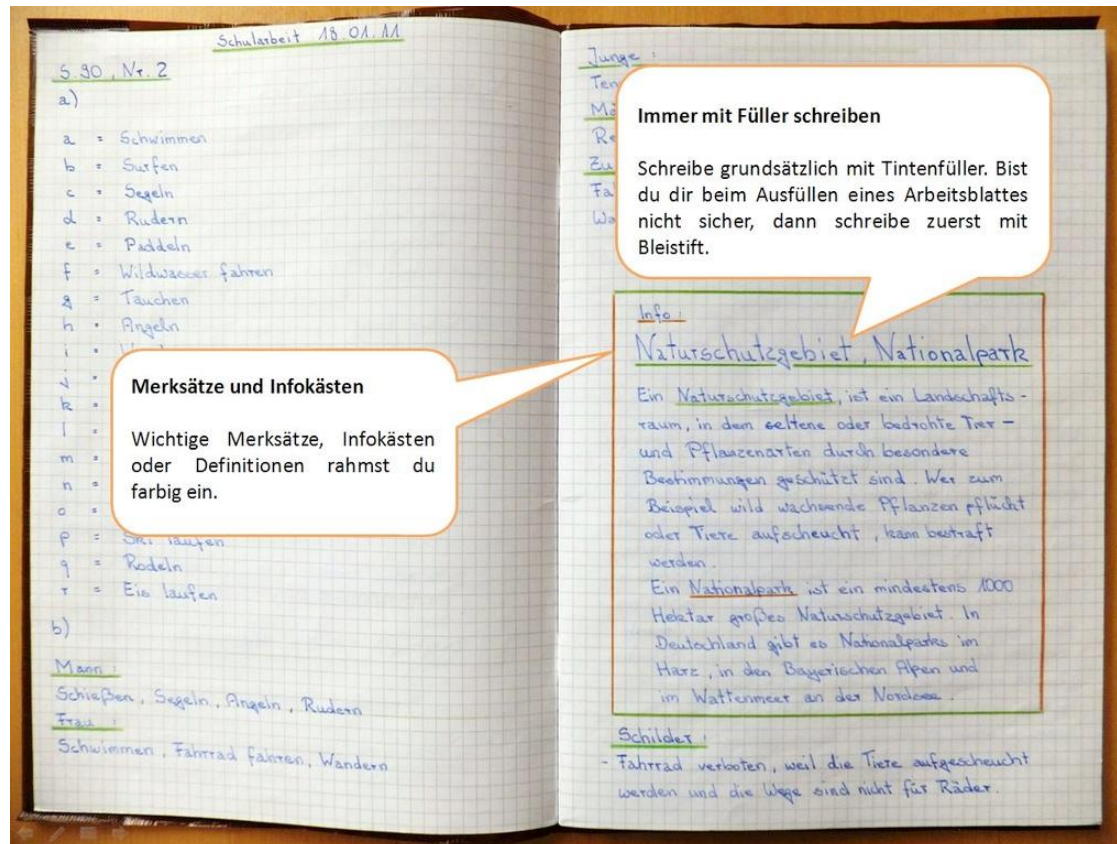 Schularbeit 18.01.11
S.90, Nr. 2
a)
a = Schwimmen
b = Surfen
c = Segeln
d = Rudern
e = Paddeln
f = Wildwasser fahren
g = Tauchen
h = Angeln
i =
j =
k =
l =
m =
n =
o =
p = Ski laufen
q = Rodeln
r = Eis laufen
b)
Mann:
Schießen, Segeln, Angeln, Rudern
Frau:
Schwimmen, Fahrrad fahren, Wandern
Merksätze und Infokästen
Wichtige Merksätze, Infokästen
oder Definitionen rahmst du
farbig ein.
Junge:
Immer mit Füller schreiben
Schreibe grundsätzlich mit Tintenfüller. Bist
du dir beim Ausfüllen eines Arbeitsblattes
nicht sicher, dann schreibe zuerst mit
Bleistift.
Info:
Naturschutzgebiet, Nationalpark
Ein Naturschutzgebiet, ist ein Landschafts-
raum, in dem seltene oder bedrohte Tier-
und Pflanzenarten durch besondere
Bestimmungen geschützt sind. Wer zum
Beispiel wild wachsende Pflanzen pflückt
oder Tiere aufscheucht, kann bestraft
werden.
Ein Nationalpark ist ein mindestens 1000
Hektar großes Naturschutzgebiet. In
Deutschland gibt es Nationalparks im
Harz, in den Bayerischen Alpen und
im Wattenmeer an der Nordsee.
Schilder:
- Fahrrad verboten, weil die Tiere aufgescheucht
werden und die Wege sind nicht für Räder.